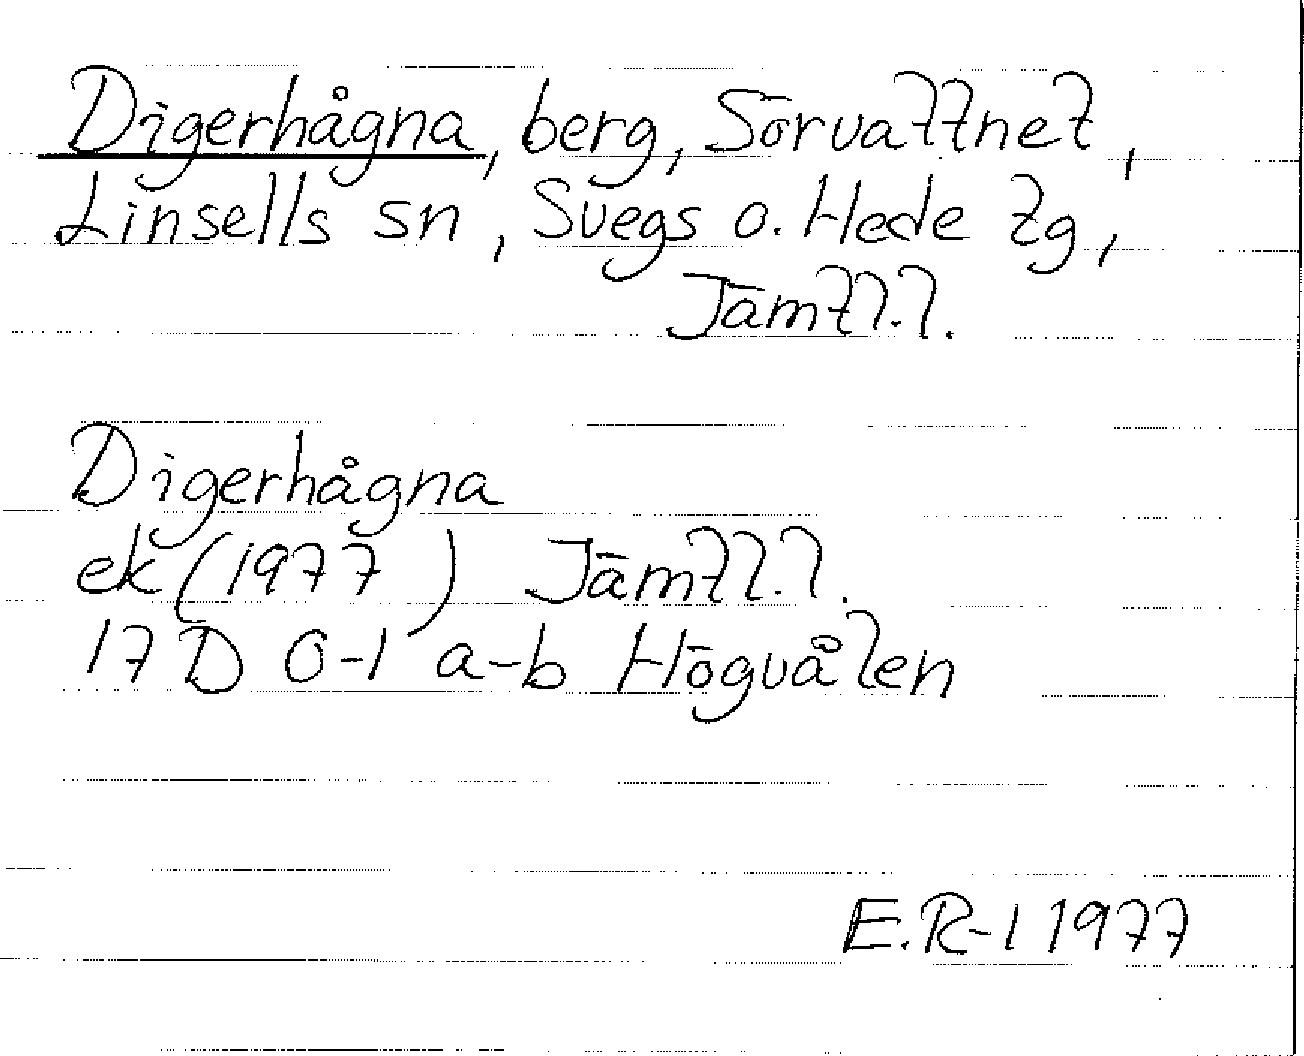 Digerhågna, berg, Sörvattnet,
Linsells sn, Svegs o. Hede tg,
Jämtl.l.
Digerhågna
ek (1977) Jämtl.l.
17 D 0-1 a-b Högvålen
E.R-l 1977